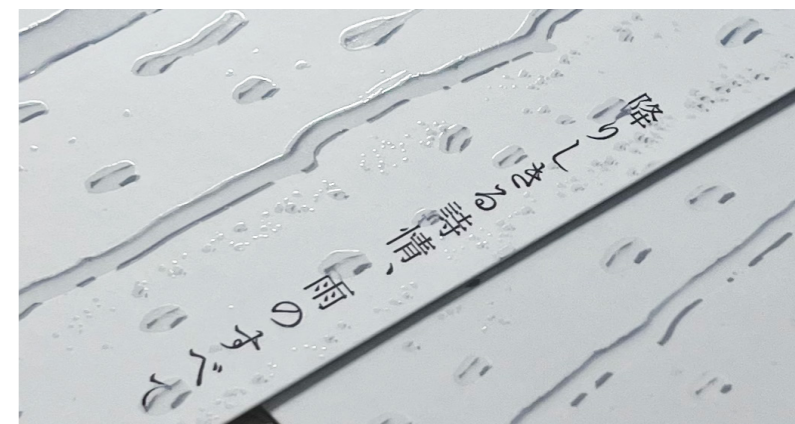 降りしきる詩情、雨のすべて